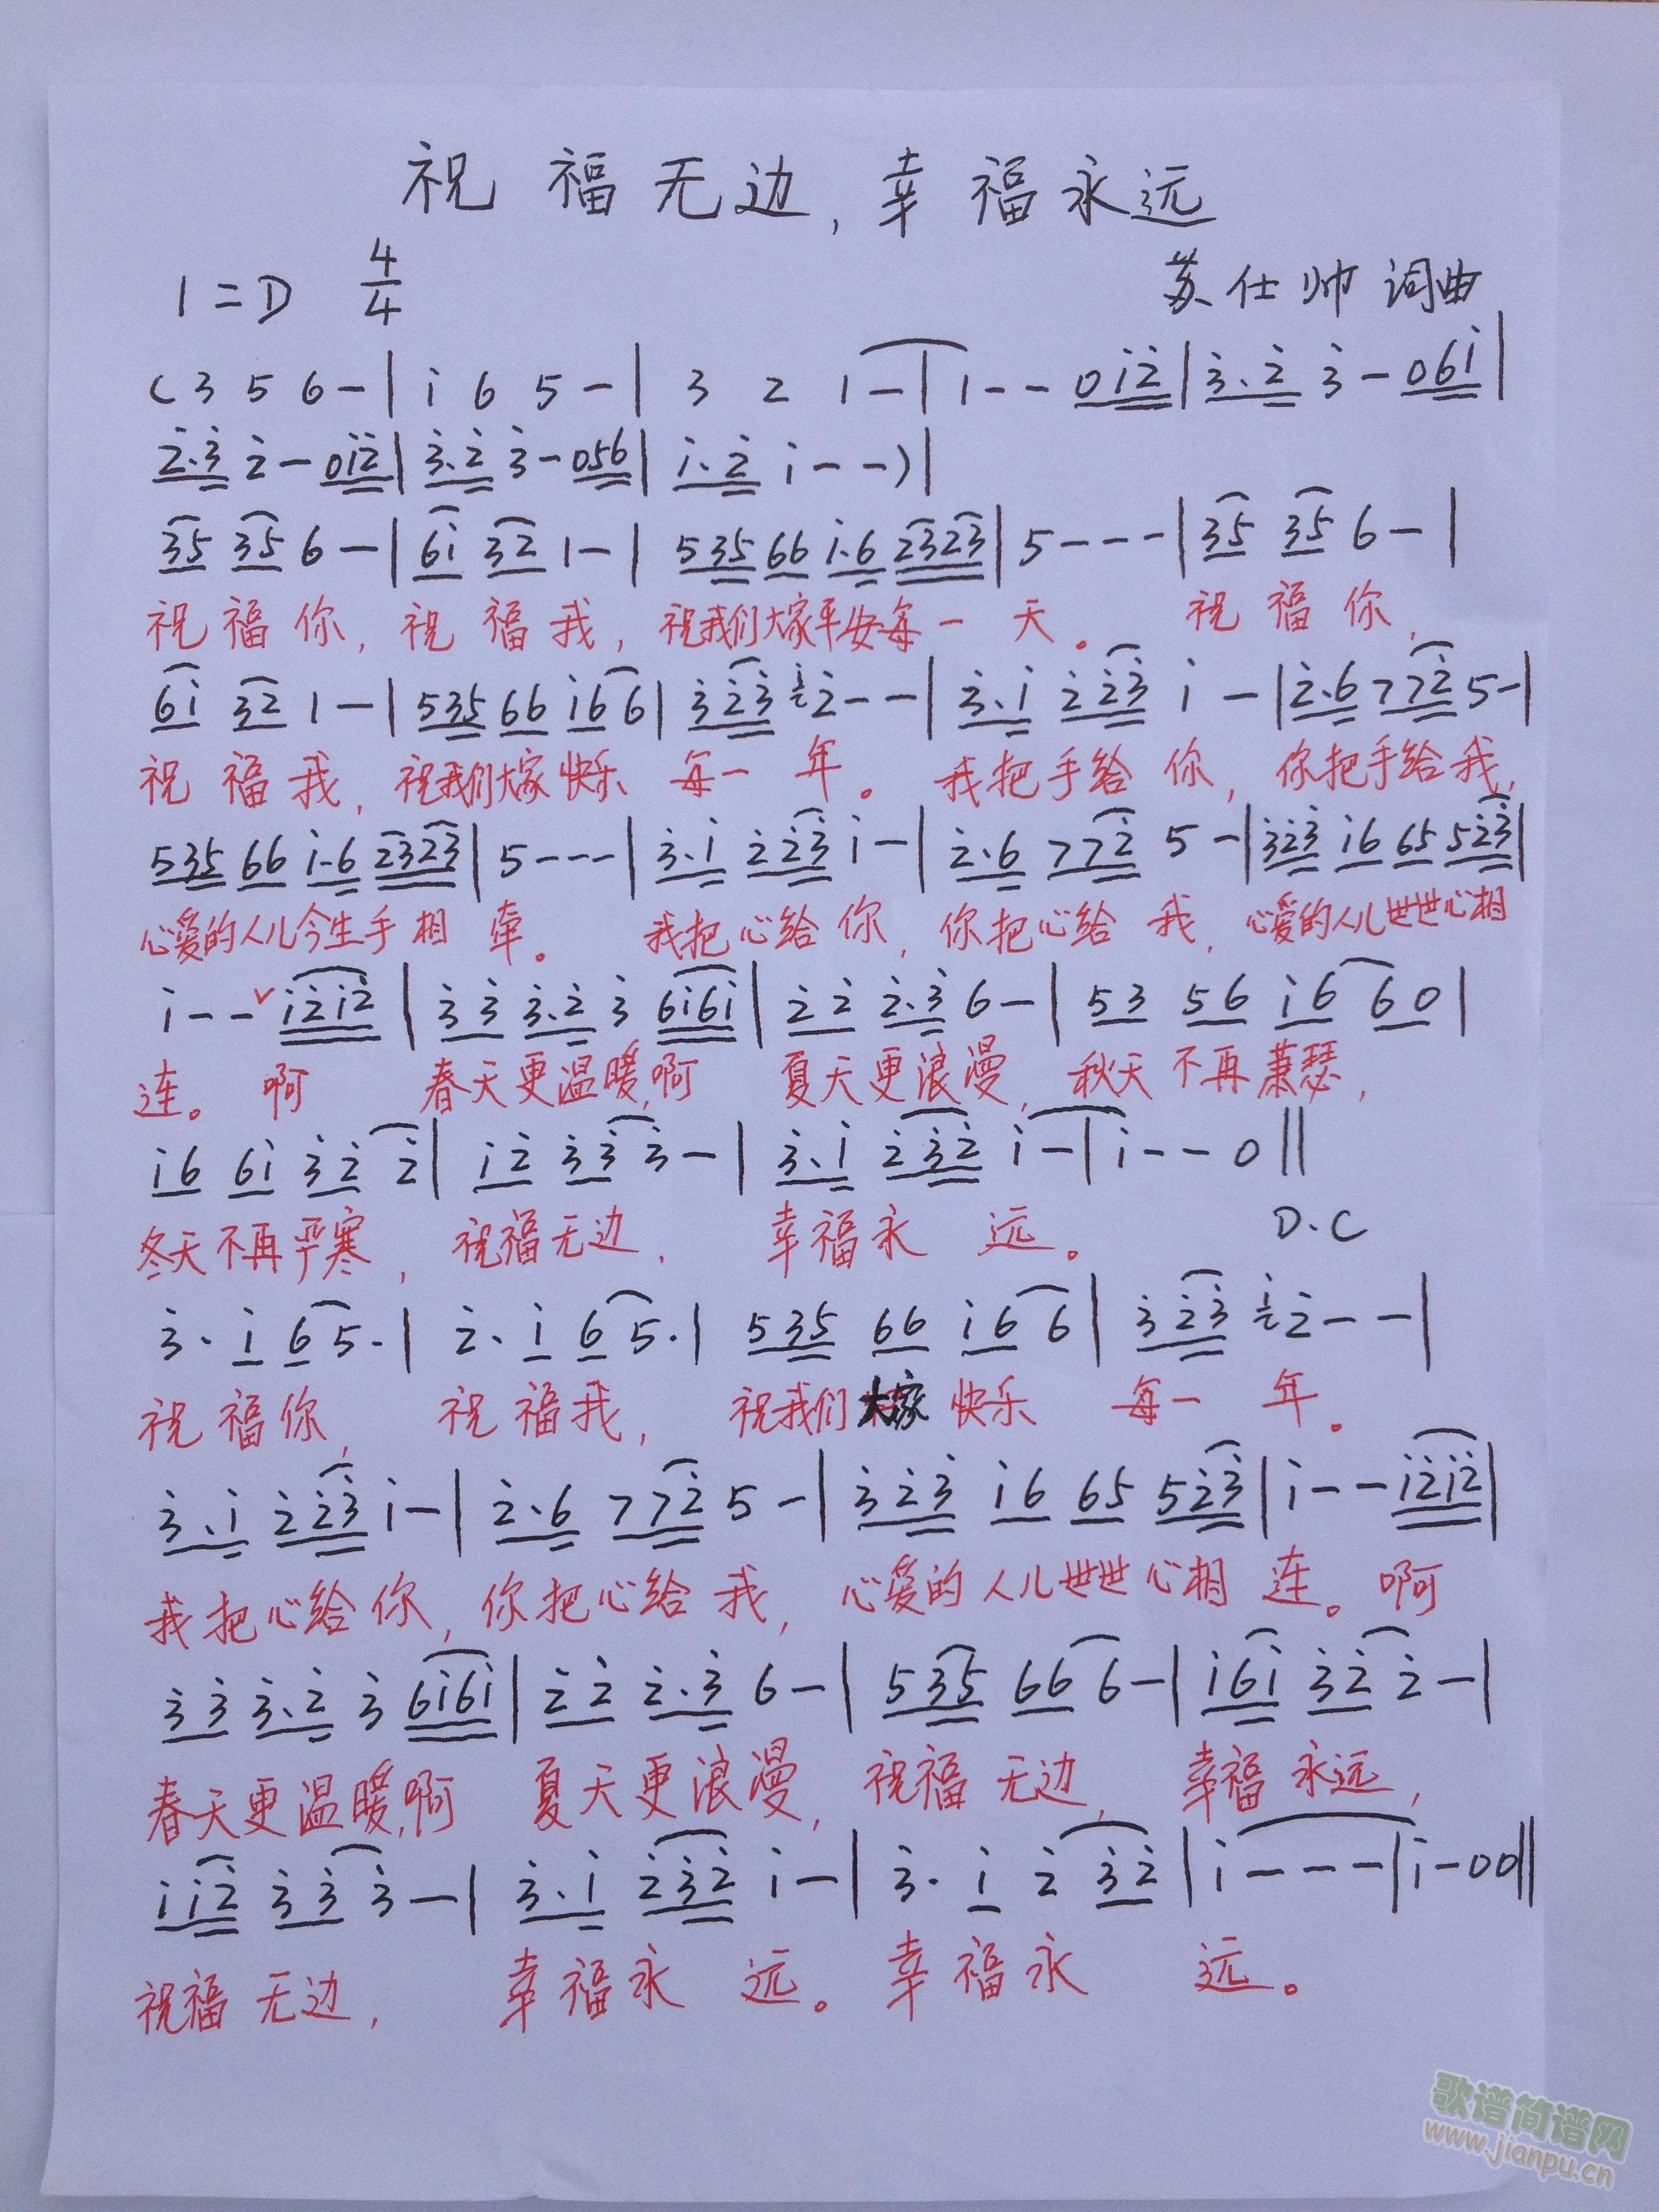 祝福无边,幸福永远
1=D 4/4 苏仕帅 词曲
(3 5 6 - | i 6 5 - | 3 2 1 - | 1 - - 0i2 | 3.2 3 - 06i |
2.3 2 - 0i2 | 3.2 3 - 056 | i.2 i - - ) |
35 35 6 - | 6i 32 1 - | 535 66 i.6 2323 | 5 - - - | 35 35 6 - |
祝福你,祝福我,祝我们大家平安每一天。祝福你,
6i 32 1 - | 535 66 i6 6 | 323 i2 - - | 3.i 223 i - | 2.6 772 5 - |
祝福我,祝我们大家快乐每一年。我把手给你,你把手给我,
535 66 i.6 2323 | 5 - - - | 3.i 223 i - | 2.6 772 5 - | 323 i6 65 523 |
心爱的人儿今生手相牵。我把心给你,你把心给我,心爱的人儿世世心相
i - - v i2i2 | 33 3.2 3 6i6i | 22 2.3 6 - | 53 56 i6 60 |
连。啊 春天更温暖,啊 夏天更浪漫,秋天不再萧瑟,
i6 6i 32 2 | i2 33 3 - | 3.i 232 i - | i - - 0 ||
冬天不再严寒,祝福无边,幸福永远。 D.C
3. i 6 5. | 2. i 6 5. | 535 66 i6 6 | 323 i2 - - |
祝福你,祝福我,祝我们大家快乐每一年。
3.i 223 i - | 2.6 772 5 - | 323 i6 65 523 | i - - i2i2 |
我把心给你,你把心给我,心爱的人儿世世心相连。啊
33 3.2 3 6i6i | 22 2.3 6 - | 535 66 6 - | i6i 32 2 - |
春天更温暖,啊 夏天更浪漫,祝福无边,幸福永远,
ii2 33 3 - | 3.i 232 i - | 3. i 2 32 | i - - - | i - 0 0 ||
祝福无边,幸福永远。幸福永远。
歌谱简谱网
www.jianpu.cn